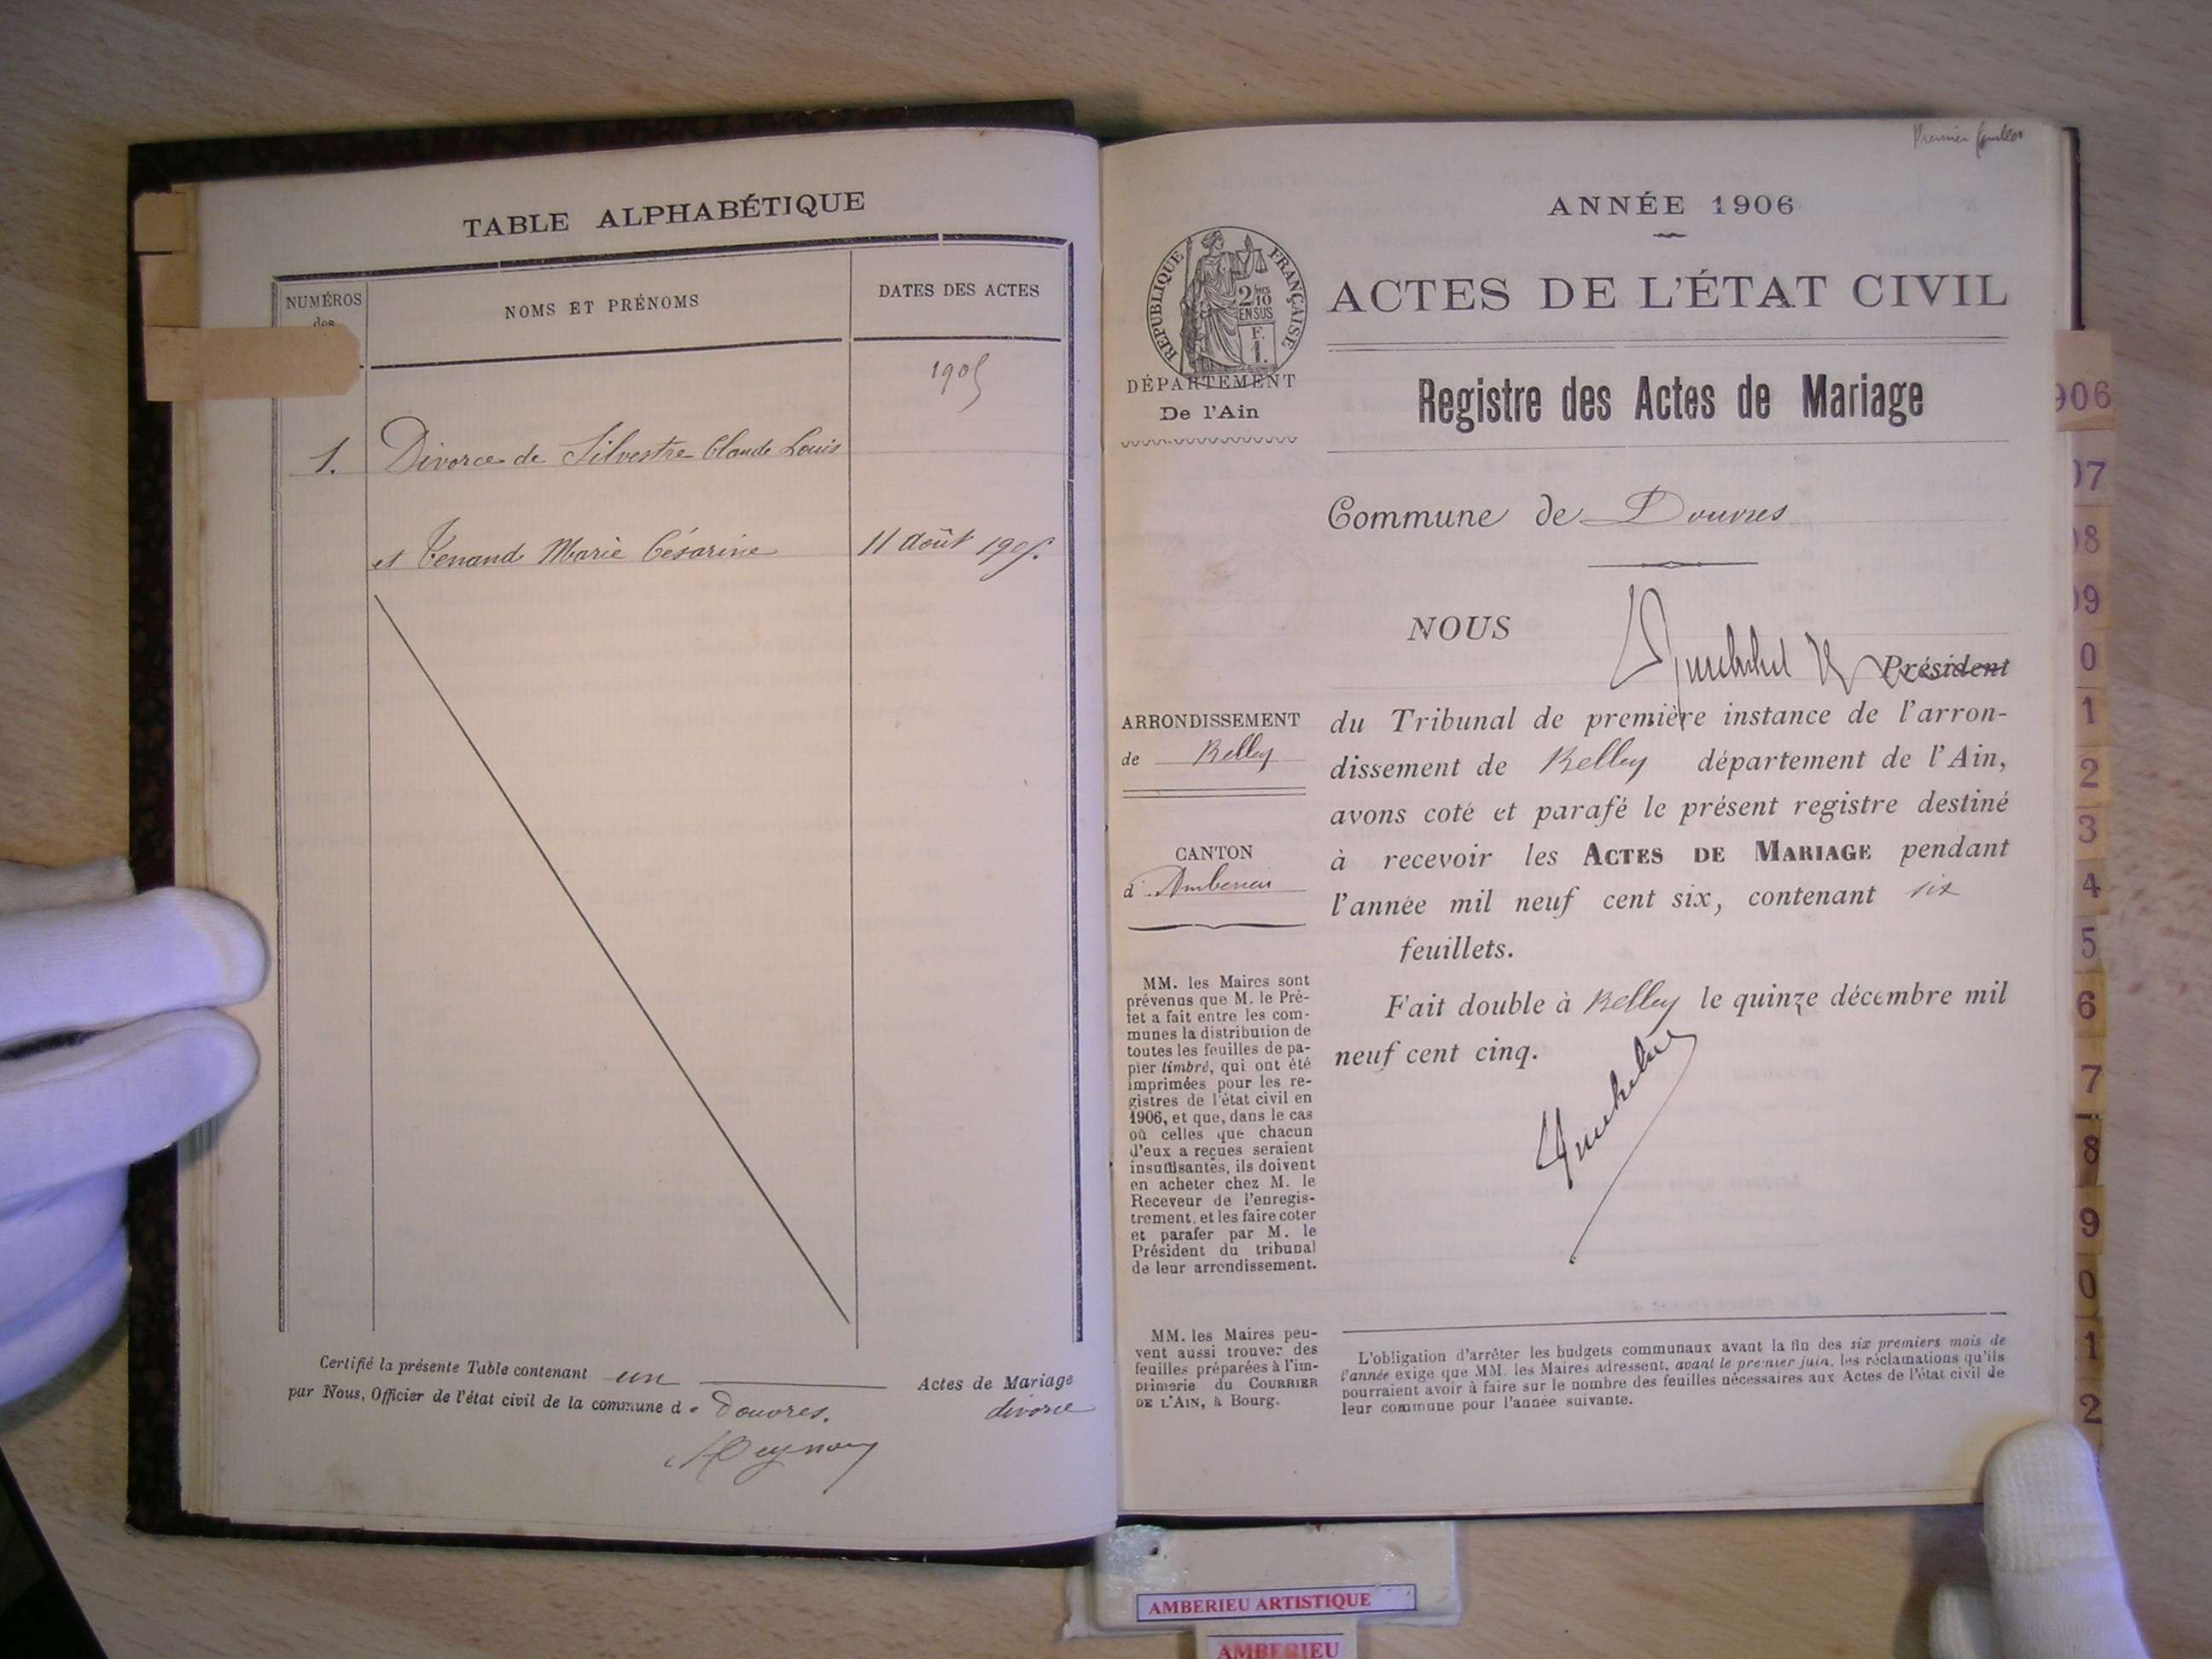 TABLE ALPHABÉTIQUE
NUMÉROS
des
NOMS ET PRÉNOMS
DATES DES ACTES
1905
1. Divorce de Silvestre Claude Louis
et Tenand Marie Césarine 11 Août 1905.
Certifié la présente Table contenant un Actes de Mariage
divorce
par Nous, Officier de l'état civil de la commune de Douvres.
Premier feuillet
ANNÉE 1906
RÉPUBLIQUE FRANÇAISE
2 10
EN SUS
F.
1.
ACTES DE L'ÉTAT CIVIL
DÉPARTEMENT
De l'Ain
Registre des Actes de Mariage
Commune de Douvres
NOUS
Président
du Tribunal de première instance de l'arron-
dissement de Belley département de l'Ain,
avons coté et parafé le présent registre destiné
à recevoir les ACTES DE MARIAGE pendant
l'année mil neuf cent six, contenant six
feuillets.
Fait double à Belley le quinze décembre mil
neuf cent cinq.
ARRONDISSEMENT
de Belley
CANTON
d'Ambérieu
MM. les Maires sont
prévenus que M. le Pré-
fet a fait entre les com-
munes la distribution de
toutes les feuilles de pa-
pier timbré, qui ont été
imprimées pour les re-
gistres de l'état civil en
1906, et que, dans le cas
où celles que chacun
d'eux a reçues seraient
insuffisantes, ils doivent
en acheter chez M. le
Receveur de l'enregis-
trement, et les faire coter
et parafer par M. le
Président du tribunal
de leur arrondissement.
MM. les Maires peu-
vent aussi trouver des
feuilles préparées à l'im-
primerie du COURRIER
DE L'AIN, à Bourg.
L'obligation d'arrêter les budgets communaux avant la fin des six premiers mois de
l'année exige que MM. les Maires adressent, avant le premier juin, les réclamations qu'ils
pourraient avoir à faire sur le nombre des feuilles nécessaires aux Actes de l'état civil de
leur commune pour l'année suivante.
906
07
08
09
0
1
2
3
4
5
6
7
8
9
0
1
2
AMBERIEU ARTISTIQUE
AMBERIEU